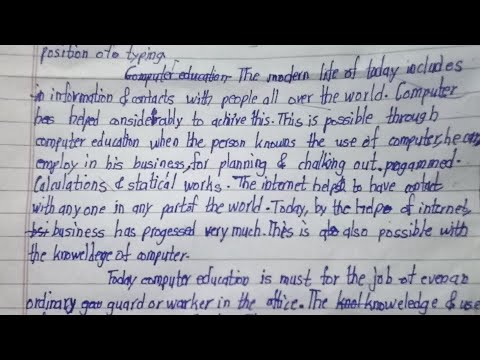 position of to typing
Computer education The modern life of today includes
in information & contacts with people all over the world. Computer
has helped considerably to achive this. This is possible through
computer education when the person knowns the use of computer, he can
employ in his business, for planning & chalking out progammed.
Calculations & statical works. The internet helped to have contact
with any one in any part of the world. Today, by the help of internet,
business has progessed very much. This is also possible with
the knowledege of computer.
Today computer education is must for the job of even an
ordinary guard or worker in the office. The knoweledge & use